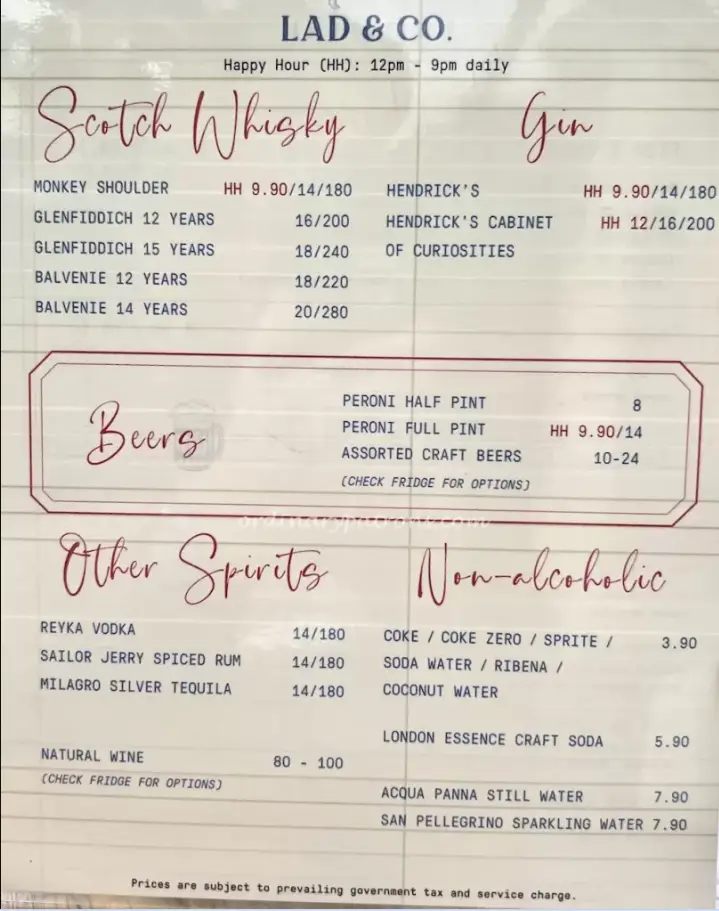 LAD & CO.
Happy Hour (HH): 12pm - 9pm daily
Scotch Whisky
MONKEY SHOULDER HH 9.90/14/180
GLENFIDDICH 12 YEARS 16/200
GLENFIDDICH 15 YEARS 18/240
BALVENIE 12 YEARS 18/220
BALVENIE 14 YEARS 20/280
Gin
HENDRICK'S HH 9.90/14/180
HENDRICK'S CABINET HH 12/16/200
OF CURIOSITIES
Beers
PERONI HALF PINT 8
PERONI FULL PINT HH 9.90/14
ASSORTED CRAFT BEERS 10-24
(CHECK FRIDGE FOR OPTIONS)
ordinarypatrons.com
Other Spirits
REYKA VODKA 14/180
SAILOR JERRY SPICED RUM 14/180
MILAGRO SILVER TEQUILA 14/180
NATURAL WINE 80 - 100
(CHECK FRIDGE FOR OPTIONS)
Non-alcoholic
COKE / COKE ZERO / SPRITE / 3.90
SODA WATER / RIBENA /
COCONUT WATER
LONDON ESSENCE CRAFT SODA 5.90
ACQUA PANNA STILL WATER 7.90
SAN PELLEGRINO SPARKLING WATER 7.90
Prices are subject to prevailing government tax and service charge.